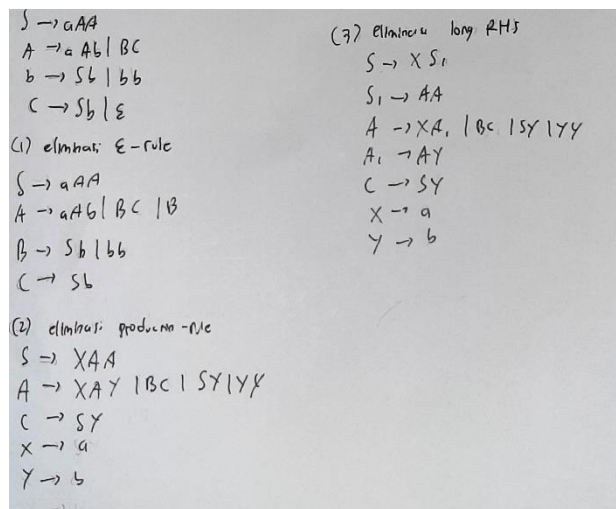 S → aAA
A → a Ab | BC
b → Sb | bb
C → Sb | ε
(1) eliminasi ε-rule
S → aAA
A → aAb | BC | B
B → Sb | bb
C → Sb
(2) eliminasi production-rule
S → XAA
A → XAY | BC | SY | YY
C → SY
X → a
Y → b
(3) eliminasi long RHS
S → X S₁
S₁ → AA
A → XA₁ | BC | SY | YY
A₁ → AY
C → SY
X → a
Y → b